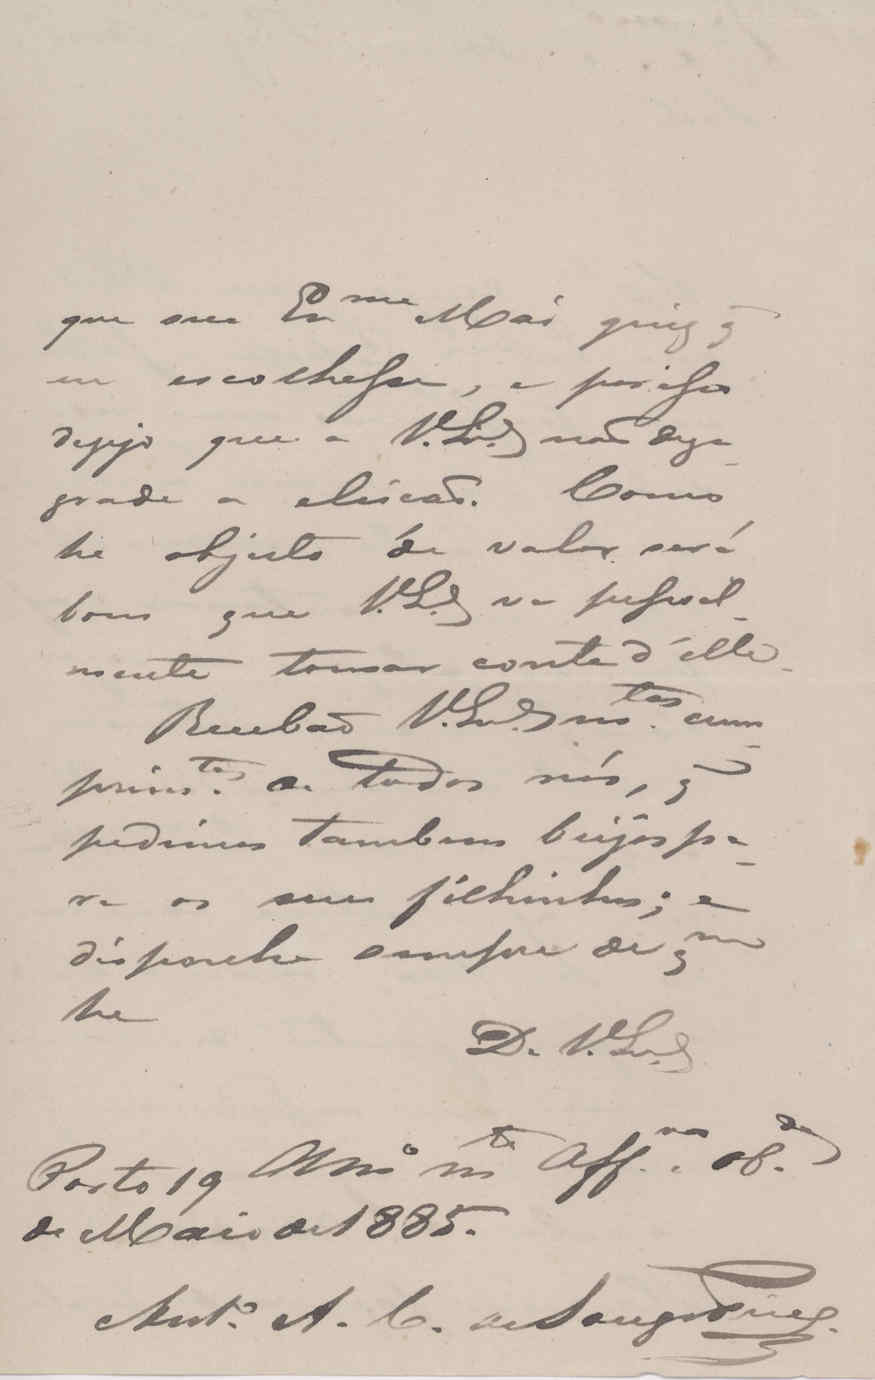 que sua Ex.ma Mai quiz q̃
eu escolhesse, e por isso
dezejo que a V. S.as não desa-
grade a eleicaõ. Como
he objecto de valor será
bom que V. S.as va pessoal-
mente tomar conta d'elle.
Recebaõ V. S.as m.tos cum-
prim.tos de todos nós, q̃
pedimos tambem beijos pa-
ra os seus filhinhos; e
disponha sempre de q.m
he
De V. S.as
Porto 19 Am.o m.to Aff.vo ob.do
de Maio de 1885.
Ant.o A. C. de